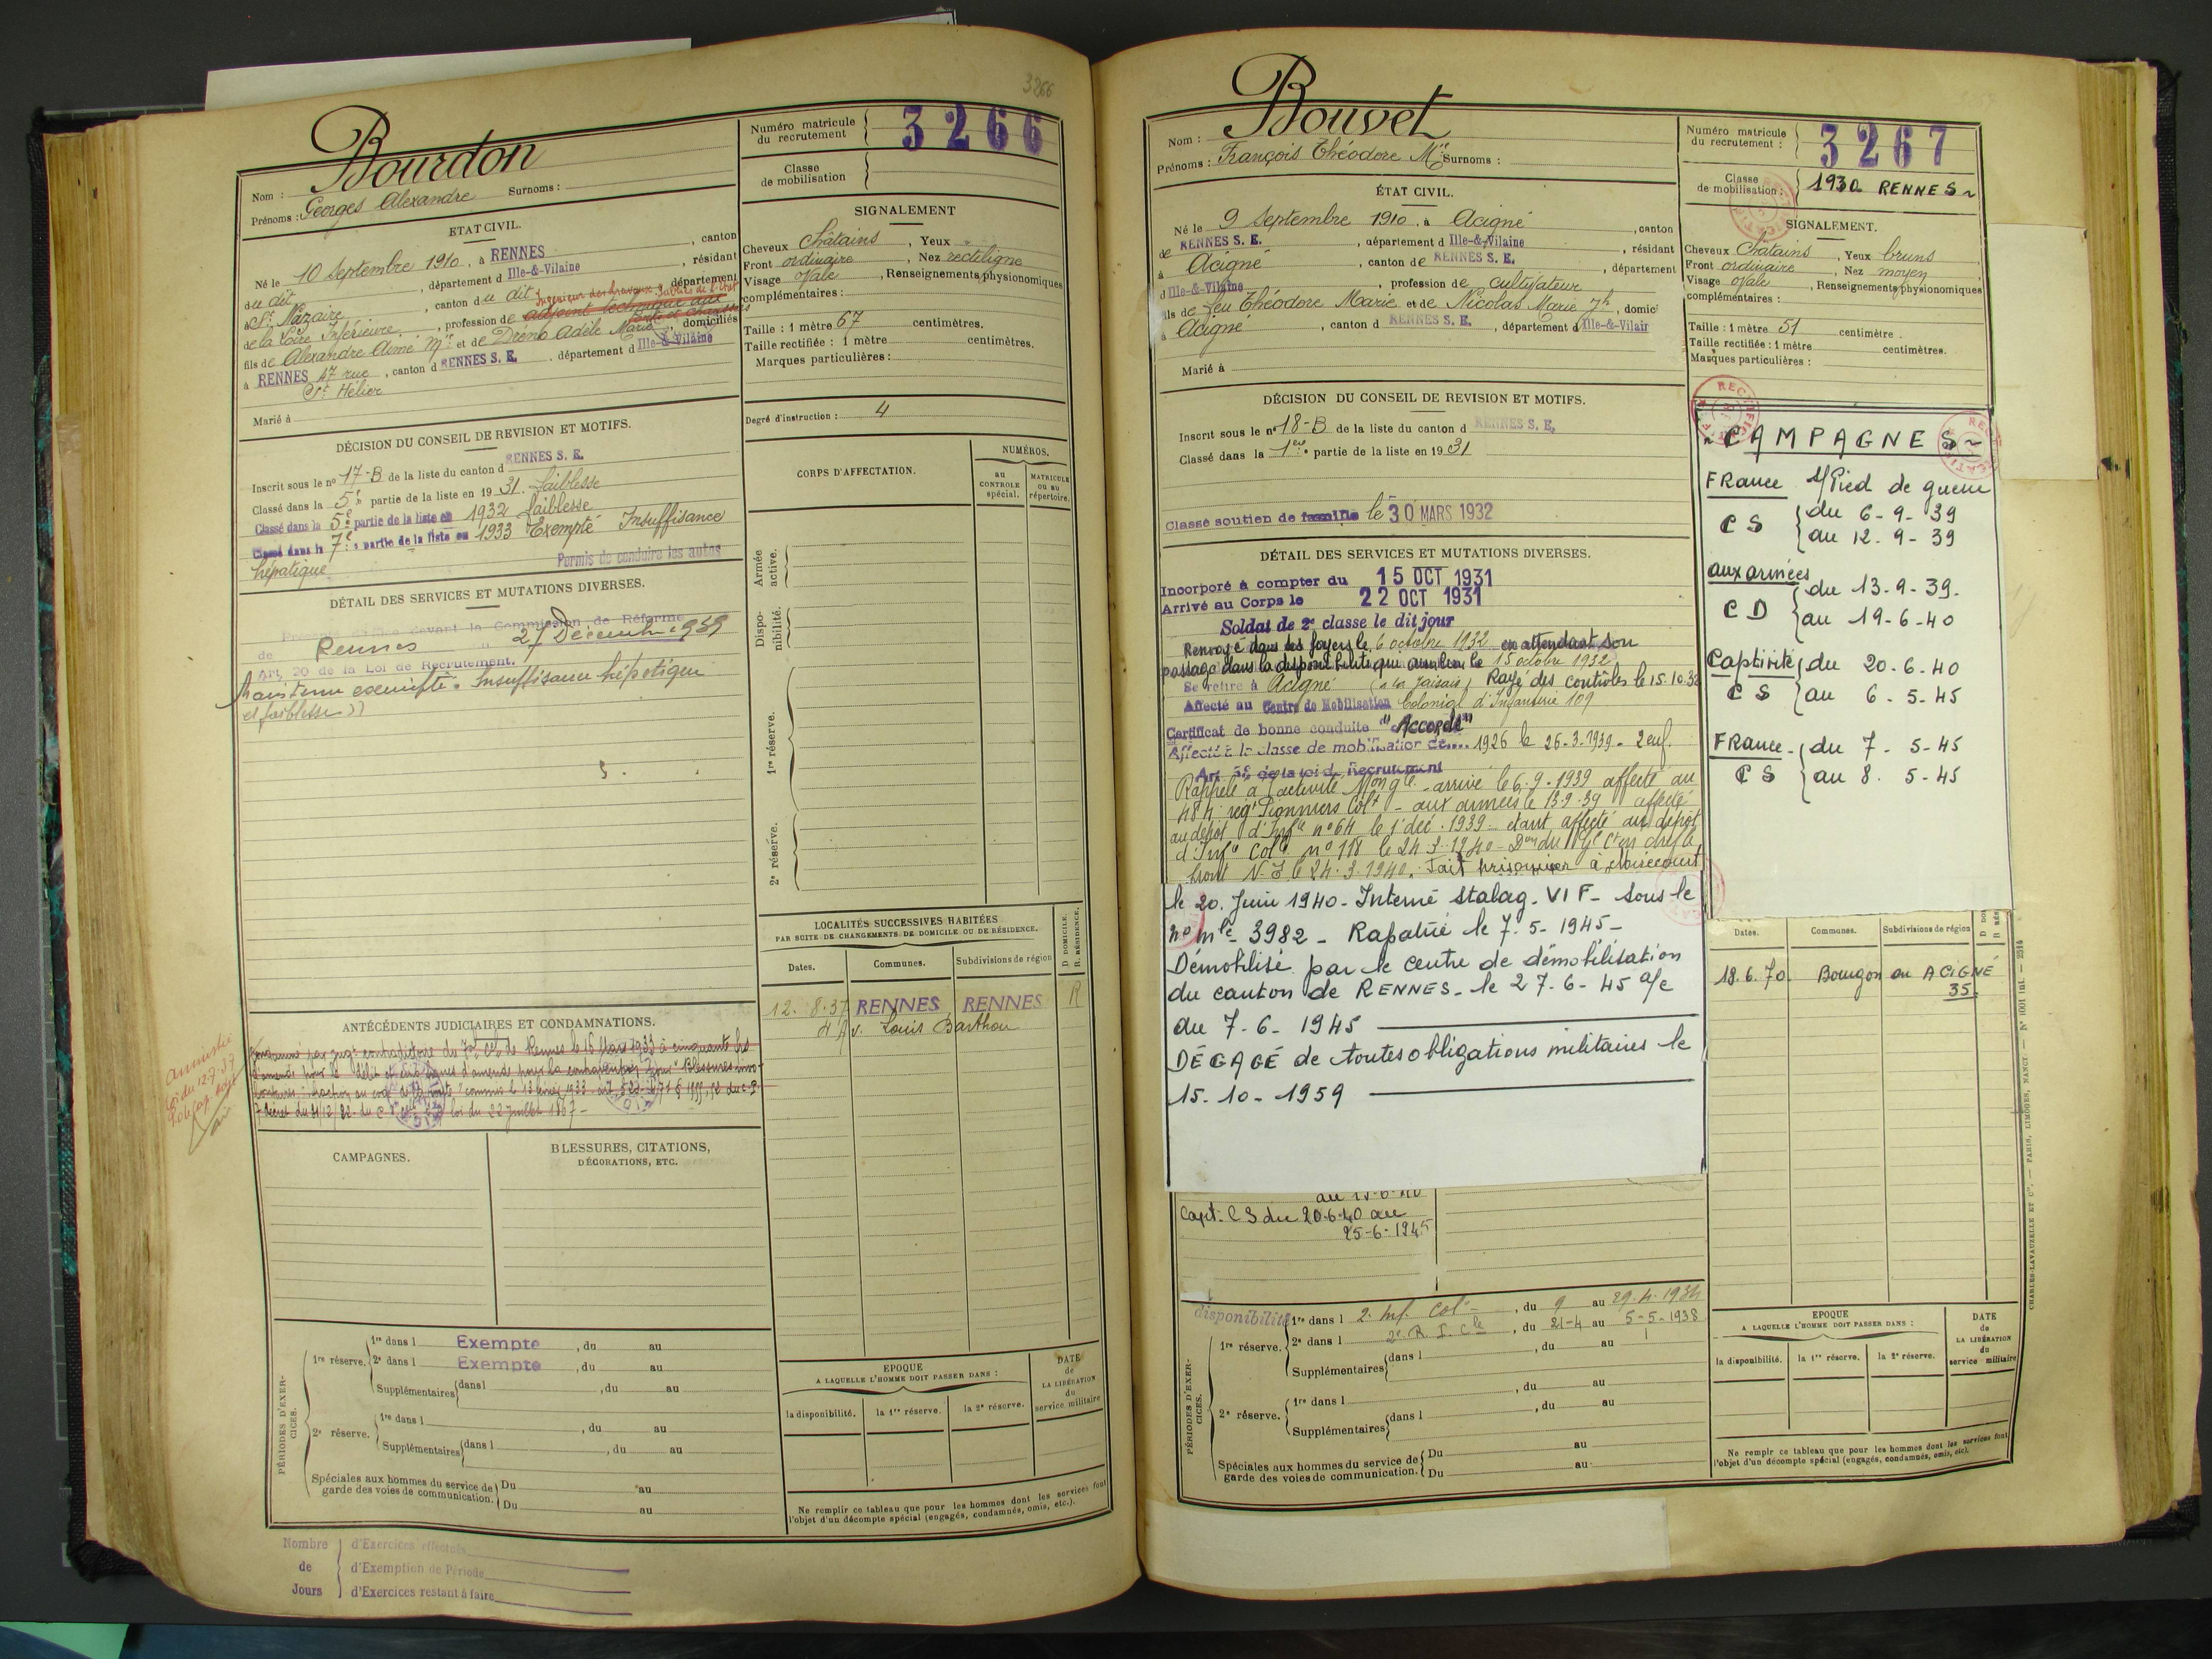 3266
Bourdon
Nom :
Prénoms : Georges Alexandre Surnoms :
Numéro matricule du recrutement 3266
Classe de mobilisation
ETAT CIVIL.
Né le 10 Septembre 1910, à RENNES, canton
du dit, département d Ille-&-Vilaine, résidant
à St Nazaire, canton du dit, département
Ingénieur des travaux Publics de l'Etat
de la Loire Inférieure, profession de adjoint technique aux
Ponts et Chaussées
fils de Alexandre Aimé Mie et de Dréno Adèle Marie, domiciliés
à RENNES 47 rue, canton d RENNES S. E., département d Ille-&-Vilaine
St Hélier
Marié à
SIGNALEMENT
Cheveux châtains, Yeux
Front ordinaire, Nez rectiligne
Visage ovale, Renseignements physionomiques
complémentaires :
Taille : 1 mètre 67 centimètres.
Taille rectifiée : 1 mètre centimètres.
Marques particulières :
Degré d'instruction : 4
DÉCISION DU CONSEIL DE REVISION ET MOTIFS.
Inscrit sous le no 17-B de la liste du canton d RENNES S. E.
Classé dans la 5e partie de la liste en 1931. faiblesse
Classé dans la 5e partie de la liste en 1932 faiblesse
Classé dans la 7e partie de la liste en 1933 Exempté Insuffisance
hépatique
Permis de conduire les autos
DÉTAIL DES SERVICES ET MUTATIONS DIVERSES.
devant la Commission de Réforme
de Rennes 27 Décembre 1939
Art. 20 de la Loi de Recrutement.
Maintenu exempté. Insuffisance hépatique
et faiblesse))
CORPS D'AFFECTATION.
NUMÉROS.
au CONTROLE spécial.
MATRICULE ou au répertoire.
Armée active.
Disponibilité.
1re réserve.
2e réserve.
LOCALITÉS SUCCESSIVES HABITÉES
PAR SUITE DE CHANGEMENTS DE DOMICILE OU DE RÉSIDENCE.
Dates. Communes. Subdivisions de région D. DOMICILE. R. RÉSIDENCE.
12. 8.37 RENNES RENNES R
Av. Louis Barthou
ANTÉCÉDENTS JUDICIAIRES ET CONDAMNATIONS.
loi du 22 juillet 1867 -
amnistie
loi du 12.7.37
CAMPAGNES.
BLESSURES, CITATIONS,
DÉCORATIONS, ETC.
PÉRIODES D'EXERCICES.
1re réserve. 1re dans l Exempté, du au
2e dans l Exempté, du au
Supplémentaires dans l, du au
2e réserve. 1re dans l, du au
Supplémentaires dans l, du au
Spéciales aux hommes du service de garde des voies de communication. Du au
Du au
EPOQUE
A LAQUELLE L'HOMME DOIT PASSER DANS :
la disponibilité. la 1re réserve. la 2e réserve.
DATE de LA LIBÉRATION du service militaire
Ne remplir ce tableau que pour les hommes dont les services font
l'objet d'un décompte spécial (engagés, condamnés, omis, etc.).
Nombre de Jours
d'Exercices effectués
d'Exemption de Période
d'Exercices restant à faire
Bouvet
Nom :
Prénoms : François Théodore Mie Surnoms :
Numéro matricule du recrutement : 3267
Classe de mobilisation : 1930 RENNES~
ÉTAT CIVIL.
Né le 9 Septembre 1910, à Acigné, canton
de RENNES S. E., département d Ille-&-Vilaine, résidant
à Acigné, canton de RENNES S. E., département
d Ille-&-Vilaine, profession de cultivateur
fils de feu Théodore Marie et de Nicolas Marie Jh, domici
à Acigné, canton d RENNES S. E., département d Ille-&-Vilain
Marié à
SIGNALEMENT.
Cheveux Châtains, Yeux bruns
Front ordinaire, Nez moyen
Visage ovale, Renseignements physionomiques
complémentaires :
Taille : 1 mètre 51 centimètre.
Taille rectifiée : 1 mètre centimètres.
Marques particulières :
DÉCISION DU CONSEIL DE REVISION ET MOTIFS.
Inscrit sous le no 18-B de la liste du canton d RENNES S. E.
Classé dans la 1ere partie de la liste en 1931
Classé soutien de famille le 30 MARS 1932
DÉTAIL DES SERVICES ET MUTATIONS DIVERSES.
Incorporé à compter du 15 OCT 1931
Arrivé au Corps le 22 OCT 1931
Soldat de 2e classe le dit jour
Renvoyé dans ses foyers le 6 octobre 1932 en attendant son
passage dans la disponibilité qui aura lieu le 15 octobre 1932
Se retire à Acigné Rayé des contrôles le 15.10.32
Affecté au Centre de Mobilisation Colonial d'Infanterie 109
Certificat de bonne conduite "Accordé"
Affecté à la classe de mobilisation de 1926 le 26.3.1939 - 2 enf.
Art. 58 de la loi de Recrutement
Rappelé à l'activité Mon gle - arrivé le 6.9.1939 affecté au
484 regt Pionniers Colt - aux armées le 13.9.39 affecté
au dépôt d'Infie no 64 le 1 déc. 1939 - étant affecté au dépôt
d'Infie Colle no 118 le 24.3.1940 - Don du Gl Ct en chef le
front N.E le 24.3.1940. Fait prisonnier à Moirécourt
le 20. Juin 1940 - Interné Stalag. VI F - sous le
no mle - 3982 - Rapatrié le 7.5-1945 -
Démobilisé par le centre de démobilisation
du canton de RENNES - le 27.6-45 a/c
du 7.6-1945
DÉGAGÉ de toutes obligations militaires le
15.10-1959
Capt. CS du 20.6.40 au
25-6-1945
CAMPAGNES~
FRance S/Pied de guerre
CS du 6-9-39
au 12.9-39
aux armées
CD du 13.9.39.
au 19.6-40
Captivité du 20.6.40
CS au 6.5-45
FRance - du 7-5-45
CS au 8.5-45
Dates. Communes. Subdivisions de région
18.6.70 Bourgon en ACIGNÉ
35.
PÉRIODES D'EXERCICES.
disponibilité
1re réserve. 1re dans l 2. Inf. Col. -, du 9 au 29.4.1934
2e dans l 2e R. I. Cle, du 21-4 au 5-5-1938
Supplémentaires dans l, du au
2e réserve. 1re dans l, du au
Supplémentaires dans l, du au
Spéciales aux hommes du service de garde des voies de communication. Du au
Du au
EPOQUE
A LAQUELLE L'HOMME DOIT PASSER DANS :
la disponibilité. la 1re réserve. la 2e réserve.
DATE de LA LIBÉRATION du service militaire
Ne remplr ce tableau que pour les hommes dont les services font
l'objet d'un décompte spécial (engagés, condamnés, omis, etc).
CHARLES-LAVAUZELLE ET Cie. — PARIS, LIMOGES, NANCY. — No 1001 int. — 2514